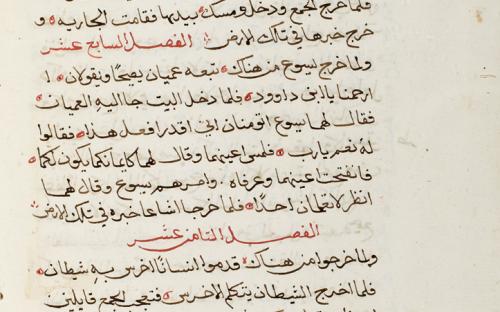 فلما خرج الجمع ودخل ومسك بيدها فقامت الجاريه و
خرج خبرها في تلك الارض الفصل السابع عشر
ولما خرج يسوع من هناك تبعه عميان يصيحا ويقولان ا
ارحمنا يا ابن داوود فلما دخل البيت جا اليه العميان
فقال لهما يسوع اتومنان اني اقدر افعل هذا فقالوا
له نعم يارب فلمس اعينهما وقال لهما كايمانكما يكون لكما
فانفتحت اعينهما وعرفاه وامرهم يسوع وقال لهما
انظر لا تعلمان احدا فلما خرجا اشاعا خبره في تلك الارض
الفصل الثامن عشر
ولما خرجوا من هناك قدموا انسانا اخرس به شيطان
فلما اخرج الشيطان يتكلم الاخرس فتعجب الجمع قايلين